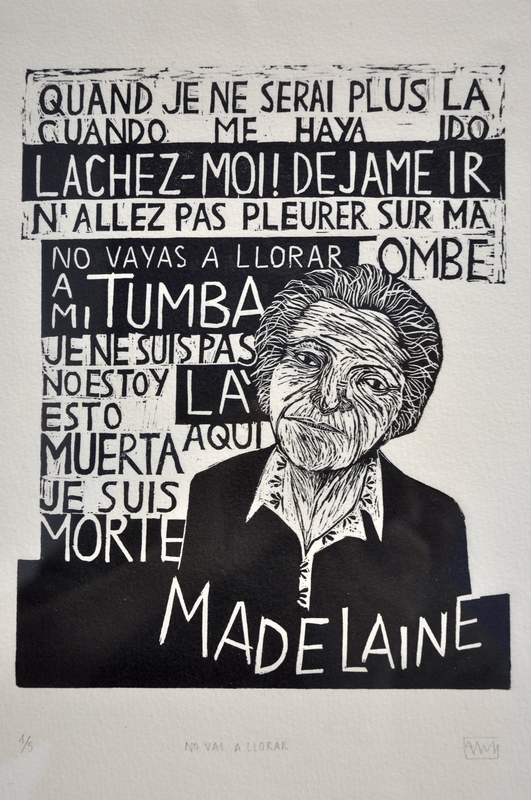 QUAND JE NE SERAI PLUS LA
CUANDO ME HAYA IDO
LACHEZ-MOI! DEJAME IR
N'ALLEZ PAS PLEURER SUR MA
TOMBE
NO VAYAS A LLORAR
A
MI TUMBA
JE NE SUIS PAS
LÀ
NO ESTOY
AQUI
ESTO
MUERTA
JE SUIS
MORTE
MADELAINE
1/5
NO VAS A LLORAR